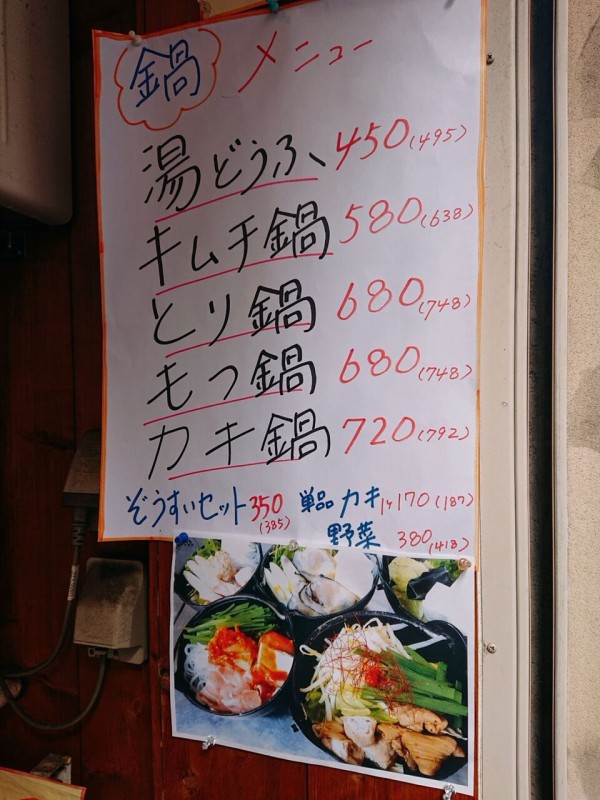 鍋 メニュー
湯どうふ 450(495)
キムチ鍋 580(638)
とり鍋 680(748)
もつ鍋 680(748)
カキ鍋 720(792)
ぞうすいセット 350(385) 単品 カキ 1ヶ170(187)
野菜 380(418)